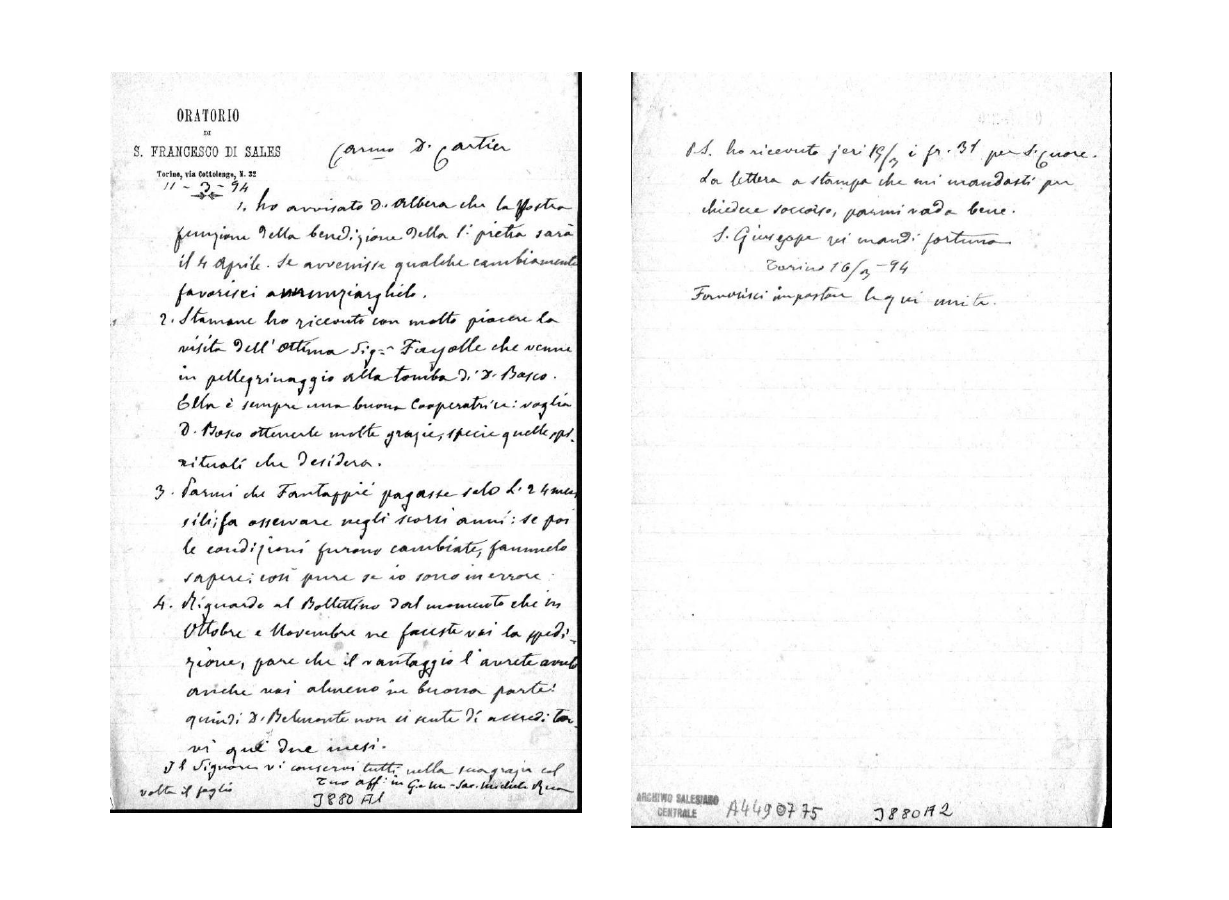 ORATORIO
DI
S. FRANCESCO DI SALES
Torino, via Cottolengo, N. 32
11 - 3 - 94
Carmo D. Cartier
1. ho avvisato D. Albera che la Vostra
funzione della benedizione della 1ª pietra sarà
il 4 Aprile. Se avvenisse qualche cambiamento
favorisci annunziarglielo.
2. Stamane ho ricevuto con molto piacere la
visita dell'Ottima Sig.ra Fayolle che venne
in pellegrinaggio alla tomba di D. Bosco.
Ella è sempre una buona Cooperatrice: voglia
D. Bosco ottenerle molte grazie, specie quelle spi-
rituali che desidera.
3. Parmi che Fantappié pagasse solo L. 24 men
sili; fa osservare negli scorsi anni: se poi
le condizioni furono cambiate, fammelo
sapere; così pure se io sono in errore.
4. Riguardo al Bollettino dal momento che in
Ottobre e Novembre ne faceste voi la spedi-
zione, pare che il vantaggio l'avrete avuto
anche voi almeno in buona parte:
quindi D. Belmonte non si sente di accreditar-
vi que' due mesi.
Il Signore vi conservi tutti nella sua grazia col
Tuo aff.º in G. e M. - Sac. Michele Rua
volta il foglio
J880 A1
P.S. ho ricevuto jeri 15/3 i fr. 31 per S. Cuore.
La lettera a stampa che mi mandasti per
chiedere soccorso, parmi vada bene.
S. Giuseppe vi mandi fortuna
Torino 16/3 - 94
Favorisci impostar le qui unite.
ARCHIVIO SALESIANO
CENTRALE
A4490775
J880A2